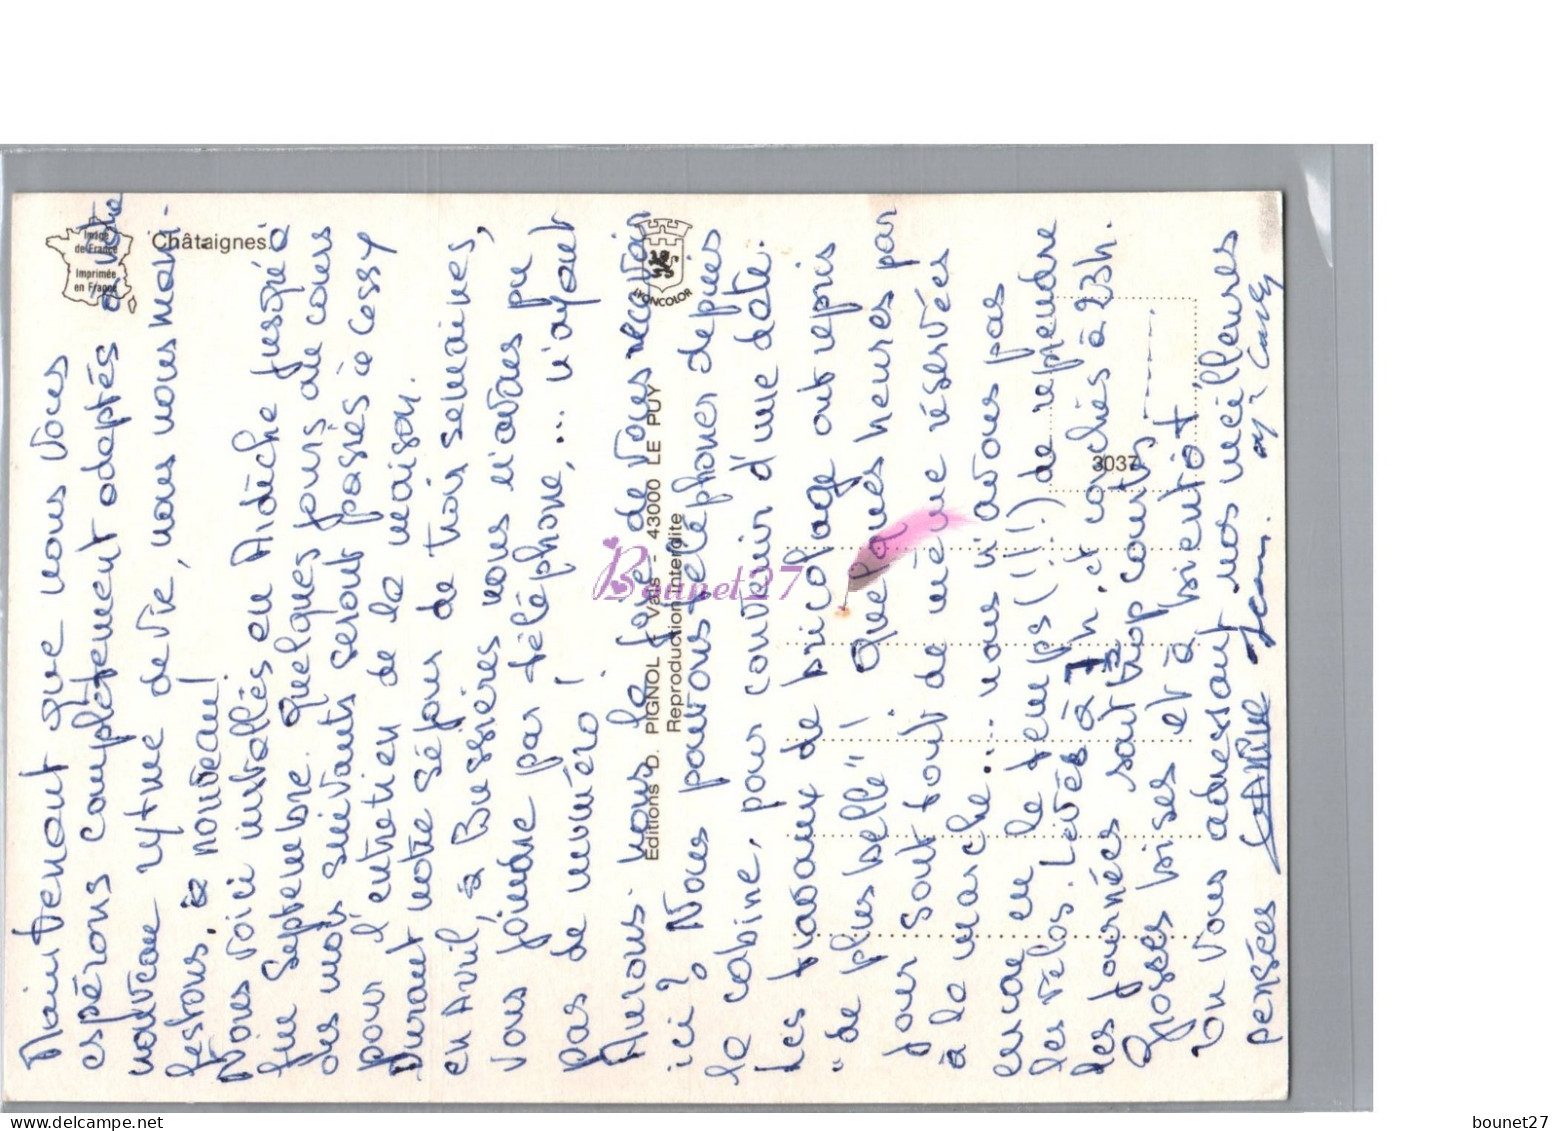 Châtaignes.
Image
de France
Imprimée
en France
LYONCOLOR
Editions D. PIGNOL - Vals - 43000 LE PUY
Reproduction interdite
3037
Maintenant que nous vous
espérons complètement adaptés à votre
nouveau rytme de vie, nous nous mani-
festons, à nouveau!
Nous voici installés en Ardèche jusqu'à
fin Septembre. Quelques jours au cours
des mois suivants seront passés à Cessy
pour l'entretien de la maison.
Durant notre séjour de trois semaines,
en Avril, à Bussières nous n'avons pu
vous joindre par téléphone,... n'ayant
pas de numéro!
Aurons-nous la joie de vous recevoir
ici? Nous pouvons téléphoner depuis
la cabine, pour convenir d'une date.
Les travaux de bricolage ont repris
"de plus belle"! Quelques heures par
jour sont tout de même réservées
à la marche.... nous n'avons pas
encore eu le temps (!!!) de reprendre
les vélos. Levés à 7h. et couchés à 23h.
les journées sont trop courtes
Grosses bises et à bientôt
En vous adressant nos meilleures
pensées Jean
Bounet27
bounet27